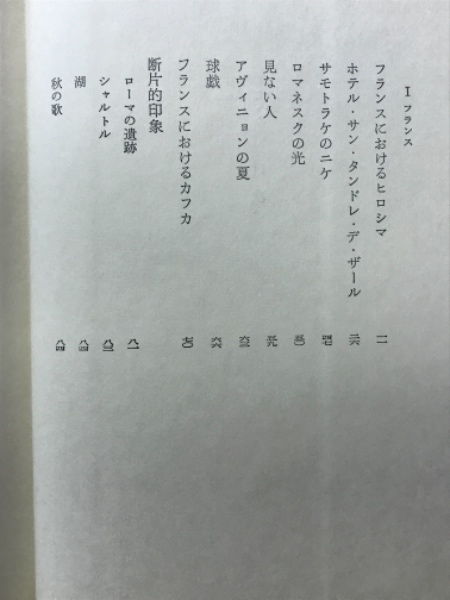 I フランス
フランスにおけるヒロシマ 一一
ホテル・サン・タンドレ・デ・ザール 二六
サモトラケのニケ 四七
ロマネスクの光 五〇
見ない人 五九
アヴィニョンの夏 六三
球戯 六六
フランスにおけるカフカ 七〇
断片的印象
ローマの遺跡 八一
シャルトル 八三
湖 八四
秋の歌 八四